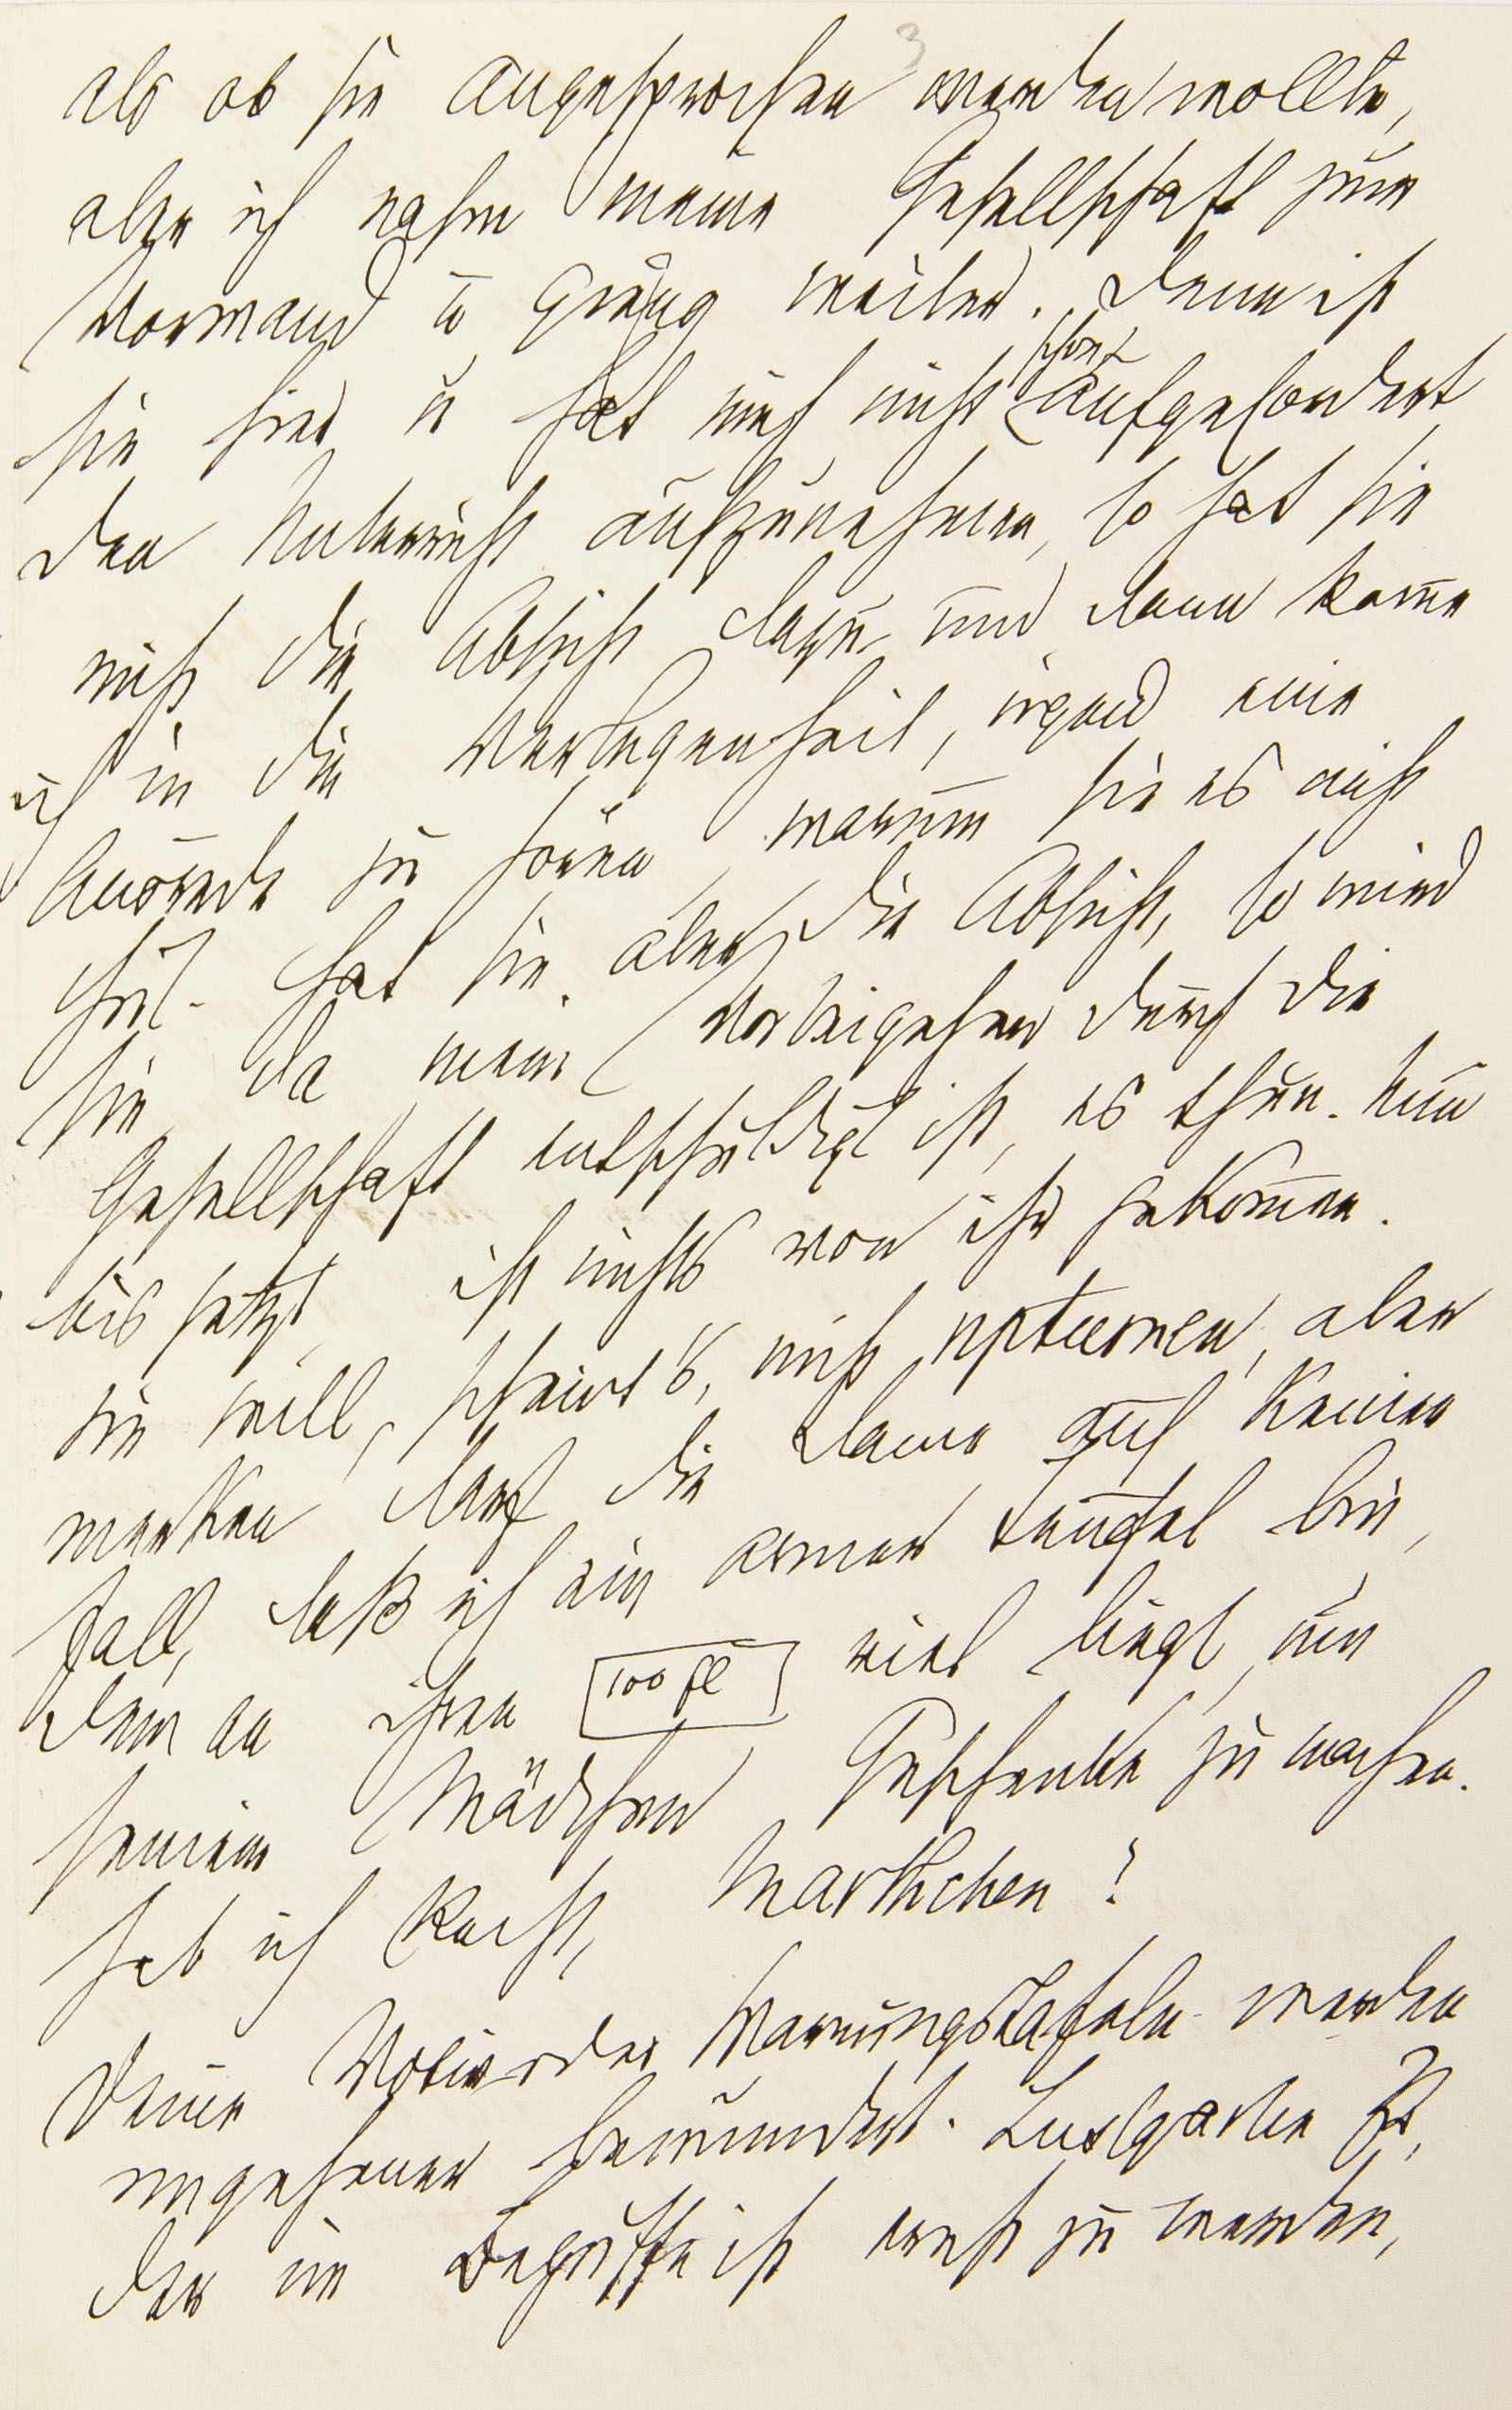 3
als ob sie angesprochen werden wollte,
aber ich nahm meine Gesellschaft zum
Vorwand u ging weiter. Denn ist
sie hier u hat mich nicht schon aufgefordert
den Unterricht aufzunehmen, so hat sie
nicht die Absicht dazu und dann kom̅e
ich in die Verlegenheit, irgend eine
Ausrede zu hören, warum sie es nicht
thut. hat sie aber die Absicht, so wird
sie da mein Vorbeigehen durch die
Gesellschaft entschuldigt ist, es thun. Nun
bis jetzt ist nichts von ihr gekom̅en.
sie will, scheint's, nicht aber
merken darf die Dame auf keinen
Fall, daß ich ein armer Teufel bin,
dem an ihren 100 fl viel liegt, um
seinem Mädchen Geschenke zu machen.
hab ich Recht, Marthchen?
Deine Votiv oder Warnungstafeln werden
ungeheuer bewundert. Lustgarten
der im Begriffe ist ernst zu werden,